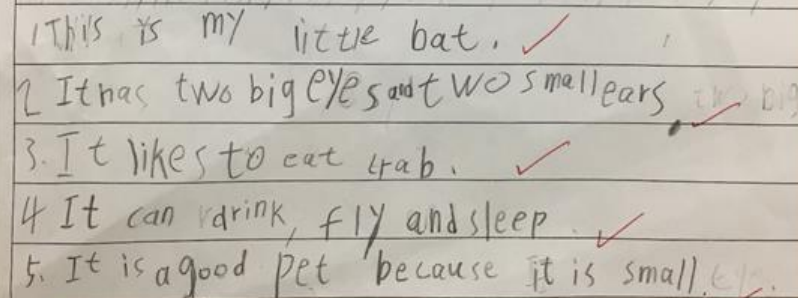 1 This is my little bat.
2 It has two big eyes and two small ears.
3. It likes to eat crab.
4 It can drink, fly and sleep.
5. It is a good pet because it is small.